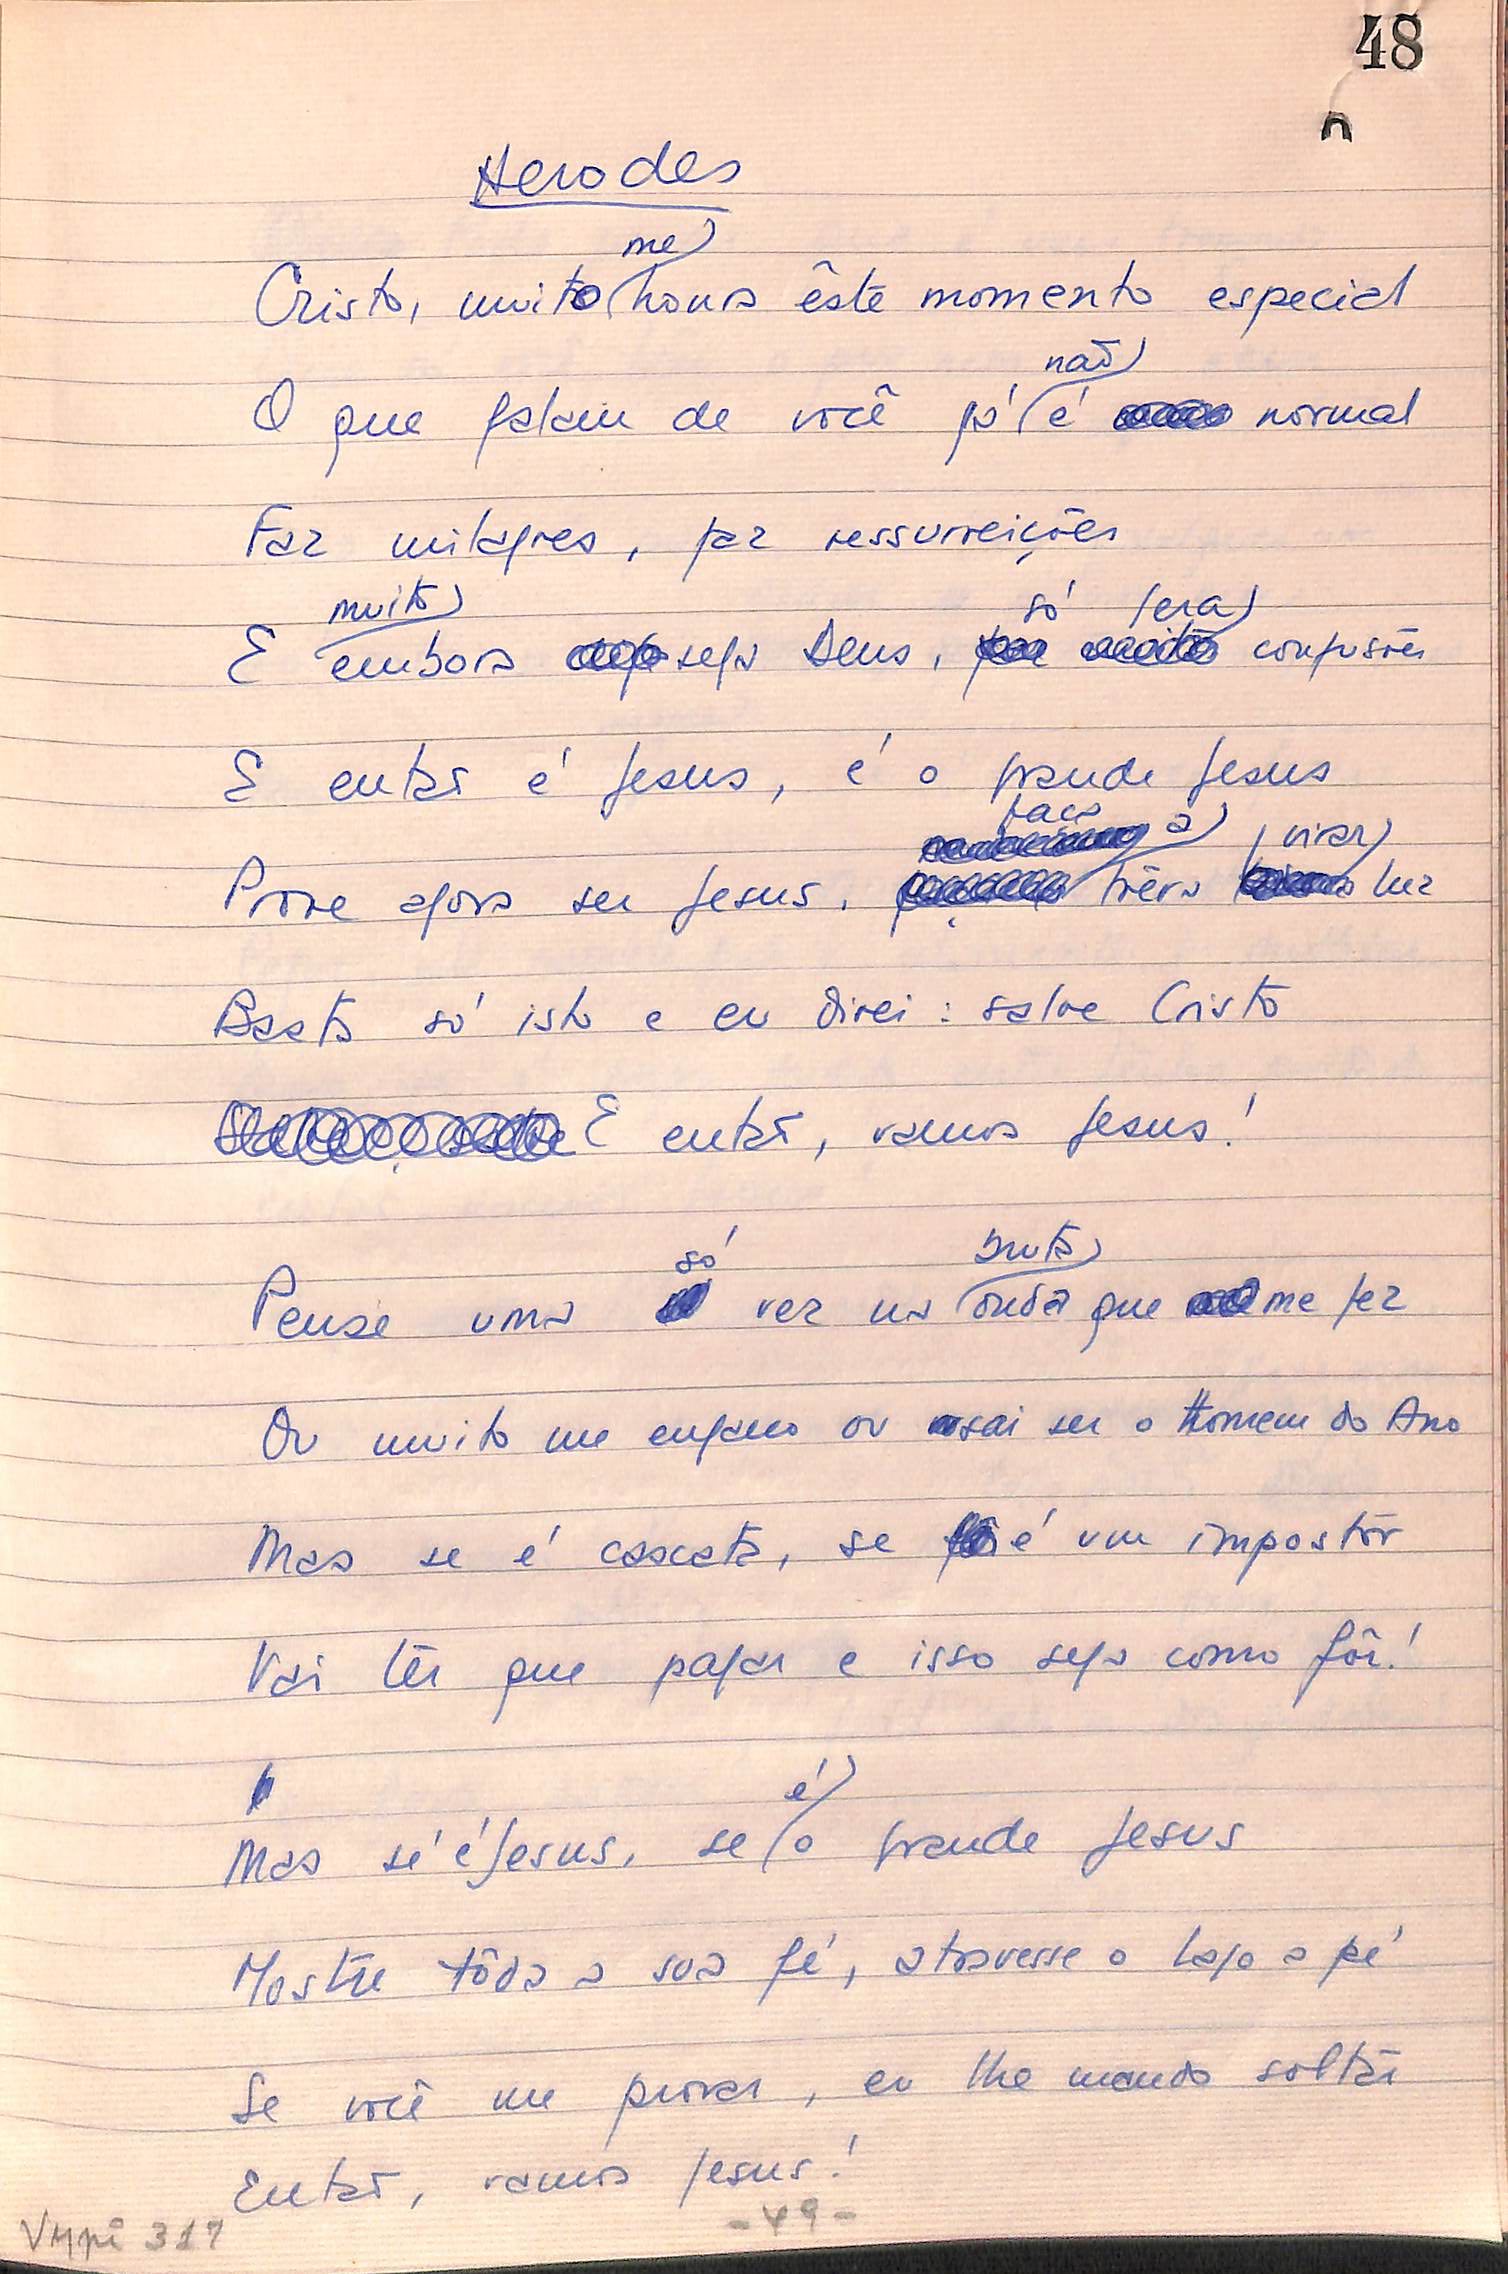 48
n
Herodes
me
Cristo, muito honra êste momento especial
não
O que falam de você já é normal
Faz milagres, faz ressurreições
muito só gera
E embora seja Deus, confusões
E então é Jesus, é o grande Jesus
faça
a virar
Prove agora ser Jesus, trêva luz
Basta só isto e eu direi: salve Cristo
E então, vamos Jesus!
só bruta
Pense uma vez na onda que me fez
Ou muito me engano ou sai ser o Homem do Ano
Mas se é cascata, se é um impostôr
Vai têr que pagar e isso seja como fôr!
é
Mas se é Jesus, se o grande Jesus
Mostre tôda a sua fé, atravesse o lago a pé
Se você me provar, eu lhe mando soltar
Então, vamos Jesus!
- 49 -
Vmpi 317